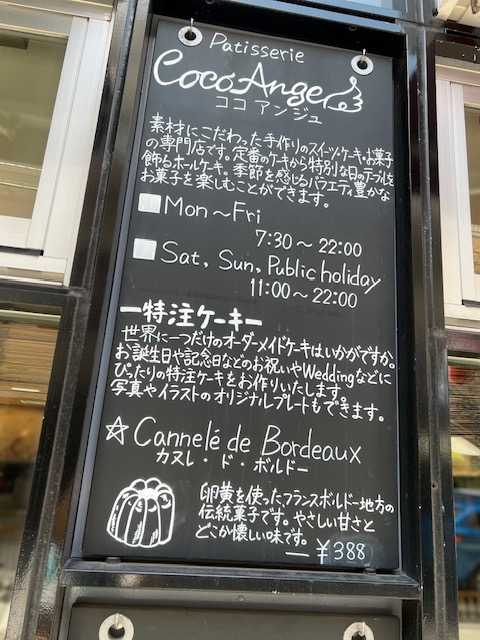 Patisserie
Coco Ange
ココ アンジュ
素材にこだわった手作りのスイーツ・ケーキ・お菓子
の専門店です。定番のケーキから特別な日のテーブルを
飾るホールケーキ。季節を感じるバラエティ豊かな
お菓子を楽しむことができます。
Mon～Fri
7:30～22:00
Sat, Sun, Public holiday
11:00～22:00
ー特注ケーキー
世界に一つだけのオーダーメイドケーキはいかがですか。
お誕生日や記念日などのお祝いやWeddingなどに
ぴったりの特注ケーキをお作りいたします。
写真やイラストのオリジナルプレートもできます。
☆Cannelé de Bordeaux
カヌレ・ド・ボルドー
卵黄を使ったフランスボルドー地方の
伝統菓子です。やさしい甘さと
どこか懐しい味です。
― ¥388